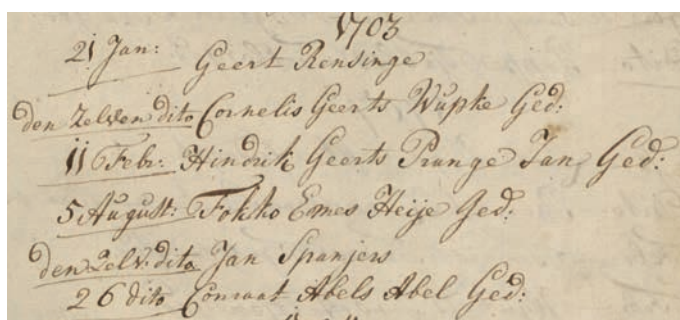 1703
21 Jan: Geert Rensinge
den Zelven dito Cornelis Geerts Wupke Ged:
11 Febr: Hindrik Geerts Prunge Jan Ged:
5 August: Fokko Emes Heije Ged:
den Zelv: dito Jan Spanjers
26 dito Conraat Abels Abel Ged: